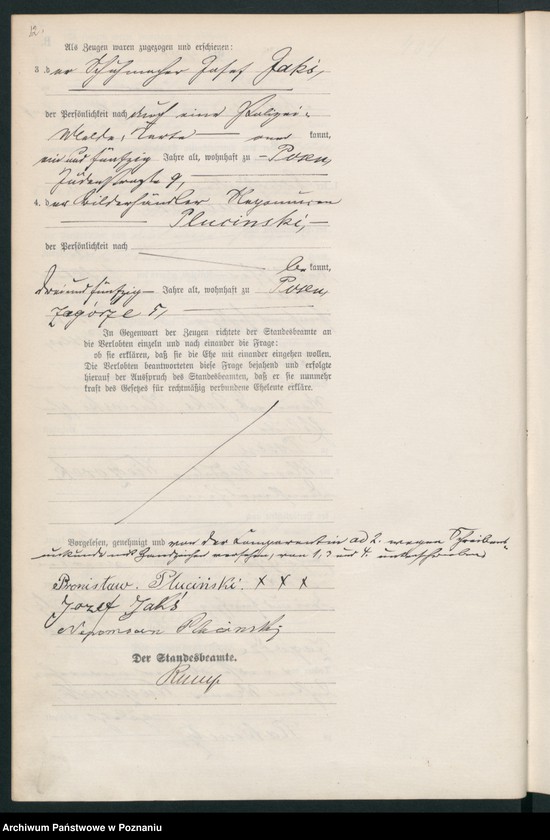 12.
Als Zeugen waren zugezogen und erschienen:
3. der Schuhmacher Josef Jakś,
der Persönlichkeit nach durch eine Polizei-
Melde-Karte — aner kannt,
ein und fünfzig Jahre alt, wohnhaft zu — Posen,
Judenstraße 9,
4. der Bilderhändler Nepomucen
Plucinski, —
der Persönlichkeit nach
be kannt,
drei und fünfzig — Jahre alt, wohnhaft zu Posen,
Zagórze 5,
In Gegenwart der Zeugen richtete der Standesbeamte an
die Verlobten einzeln und nach einander die Frage:
ob sie erklären, daß sie die Ehe mit einander eingehen wollen.
Die Verlobten beantworteten diese Frage bejahend und erfolgte
hierauf der Ausspruch des Standesbeamten, daß er sie nunmehr
kraft des Gesetzes für rechtmäßig verbundene Eheleute erkläre.
Vorgelesen, genehmigt und von der Komparentin ad 2. wegen Schreibens-
unkunde mit Handzeichen versehen, von 1, 3 und 4. unterschrieben
Bronisław Pluciński. × × ×
Jozef Jakś
Nepomucen Plucinski
Der Standesbeamte.
Archiwum Państwowe w Poznaniu
szukajwarchiwach.pl